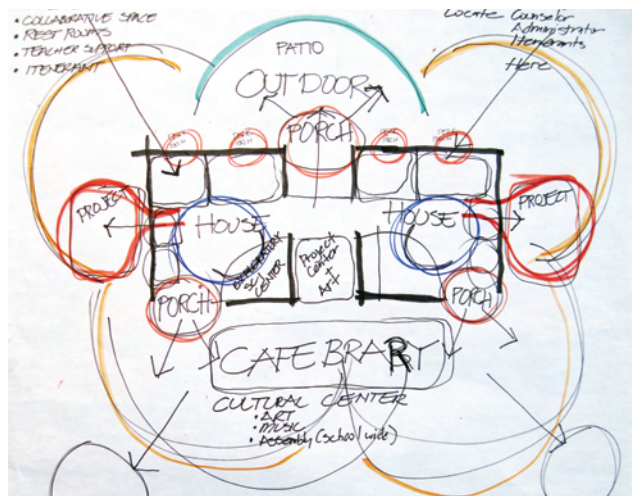 • COLLABORATIVE SPACE
• REST ROOMS
• TEACHER SUPPORT
• ITENERANT
Locate Counselor
Administrator
Itenerants
Here
PATIO
OUTDOOR
PORCH
PROJECT
HOUSE
HOUSE
PROJECT
SCI
CENTER
Project
Center
+
Art
PORCH
PORCH
CAFEBRARY
CULTURAL CENTER
• ART
• MUSIC
• Assembly (school wide)